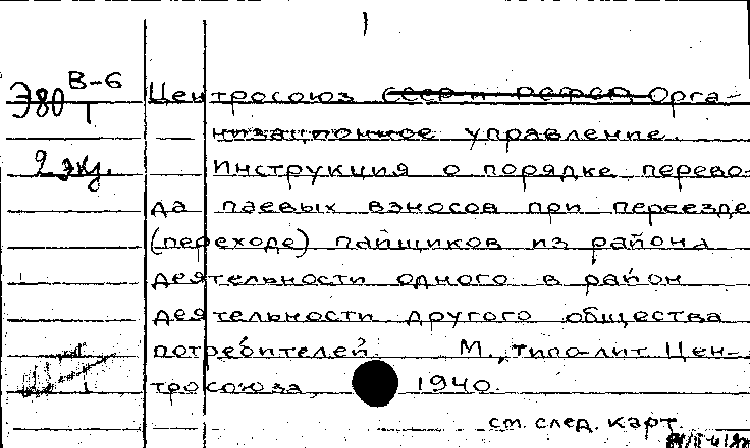 В-6
Э80
1
2 экз.
Центросоюз СССР и РСФСР. Орга-
низационное управление.
Инструкция о порядке перево-
да паевых взносов при переезде
(переходе) пайщиков из района
деятельности одного в район
деятельности другого общества
потребителей. М., типо-лит. Цен-
тросоюза, 1940.
см. след. карт.